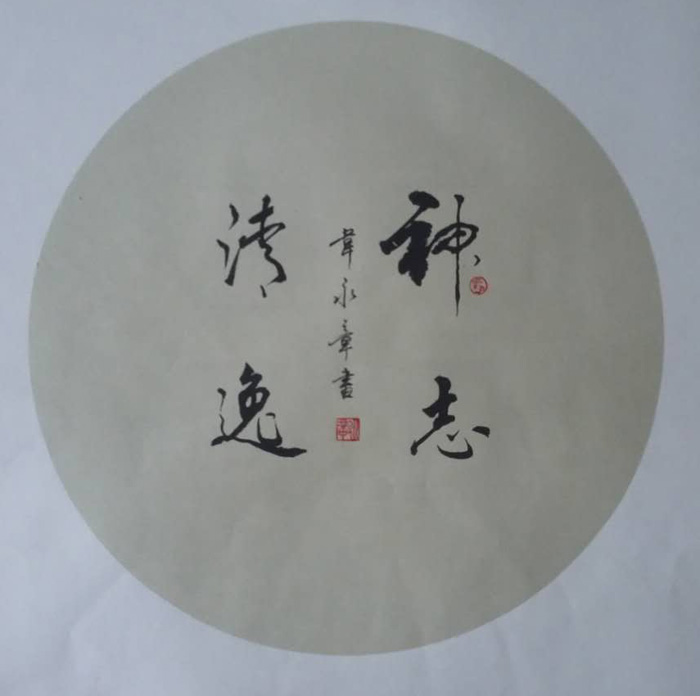 神志
清逸
韋永章書